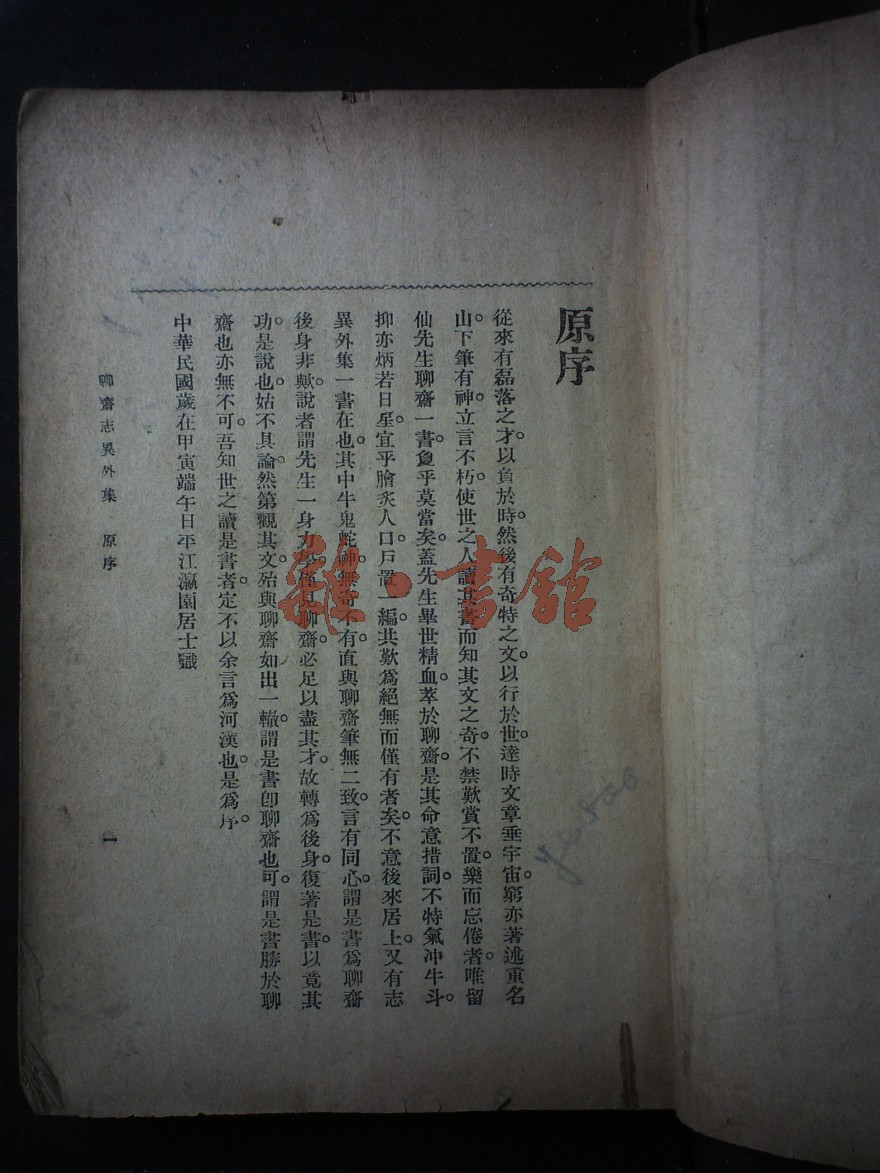 原序
從來有磊落之才。以負於時。然後有奇特之文。以行於世。達時文章垂宇宙。窮亦著述重名
山。下筆有神。立言不朽。使世之人讀其書而知其文之奇。不禁歎賞不置。樂而忘倦者。唯留
仙先生聊齋一書。夐乎莫當矣。蓋先生畢世精血。萃於聊齋。是其命意措詞。不特氣冲牛斗。
抑亦炳若日星。宜乎膾炙人口。戶置一編。共歎爲絕無而僅有者矣。不意後來居上。又有志
異外集一書在也。其中牛鬼蛇神。無奇不有。直與聊齋筆無二致。言有同心。謂是書爲聊齋
後身非歟。說者謂先生一身力學。僅見聊齋。必足以盡其才。故轉爲後身。復著是書。以竟其
功。是說也。姑不具論。然第觀其文。殆與聊齋如出一轍。謂是書卽聊齋也可。謂是書勝於聊
齋也亦無不可。吾知世之讀是書者。定不以余言爲河漢也。是爲序。
中華民國歲在甲寅端午日平江瀛園居士識
聊齋志異外集 原序
一
雜·書館